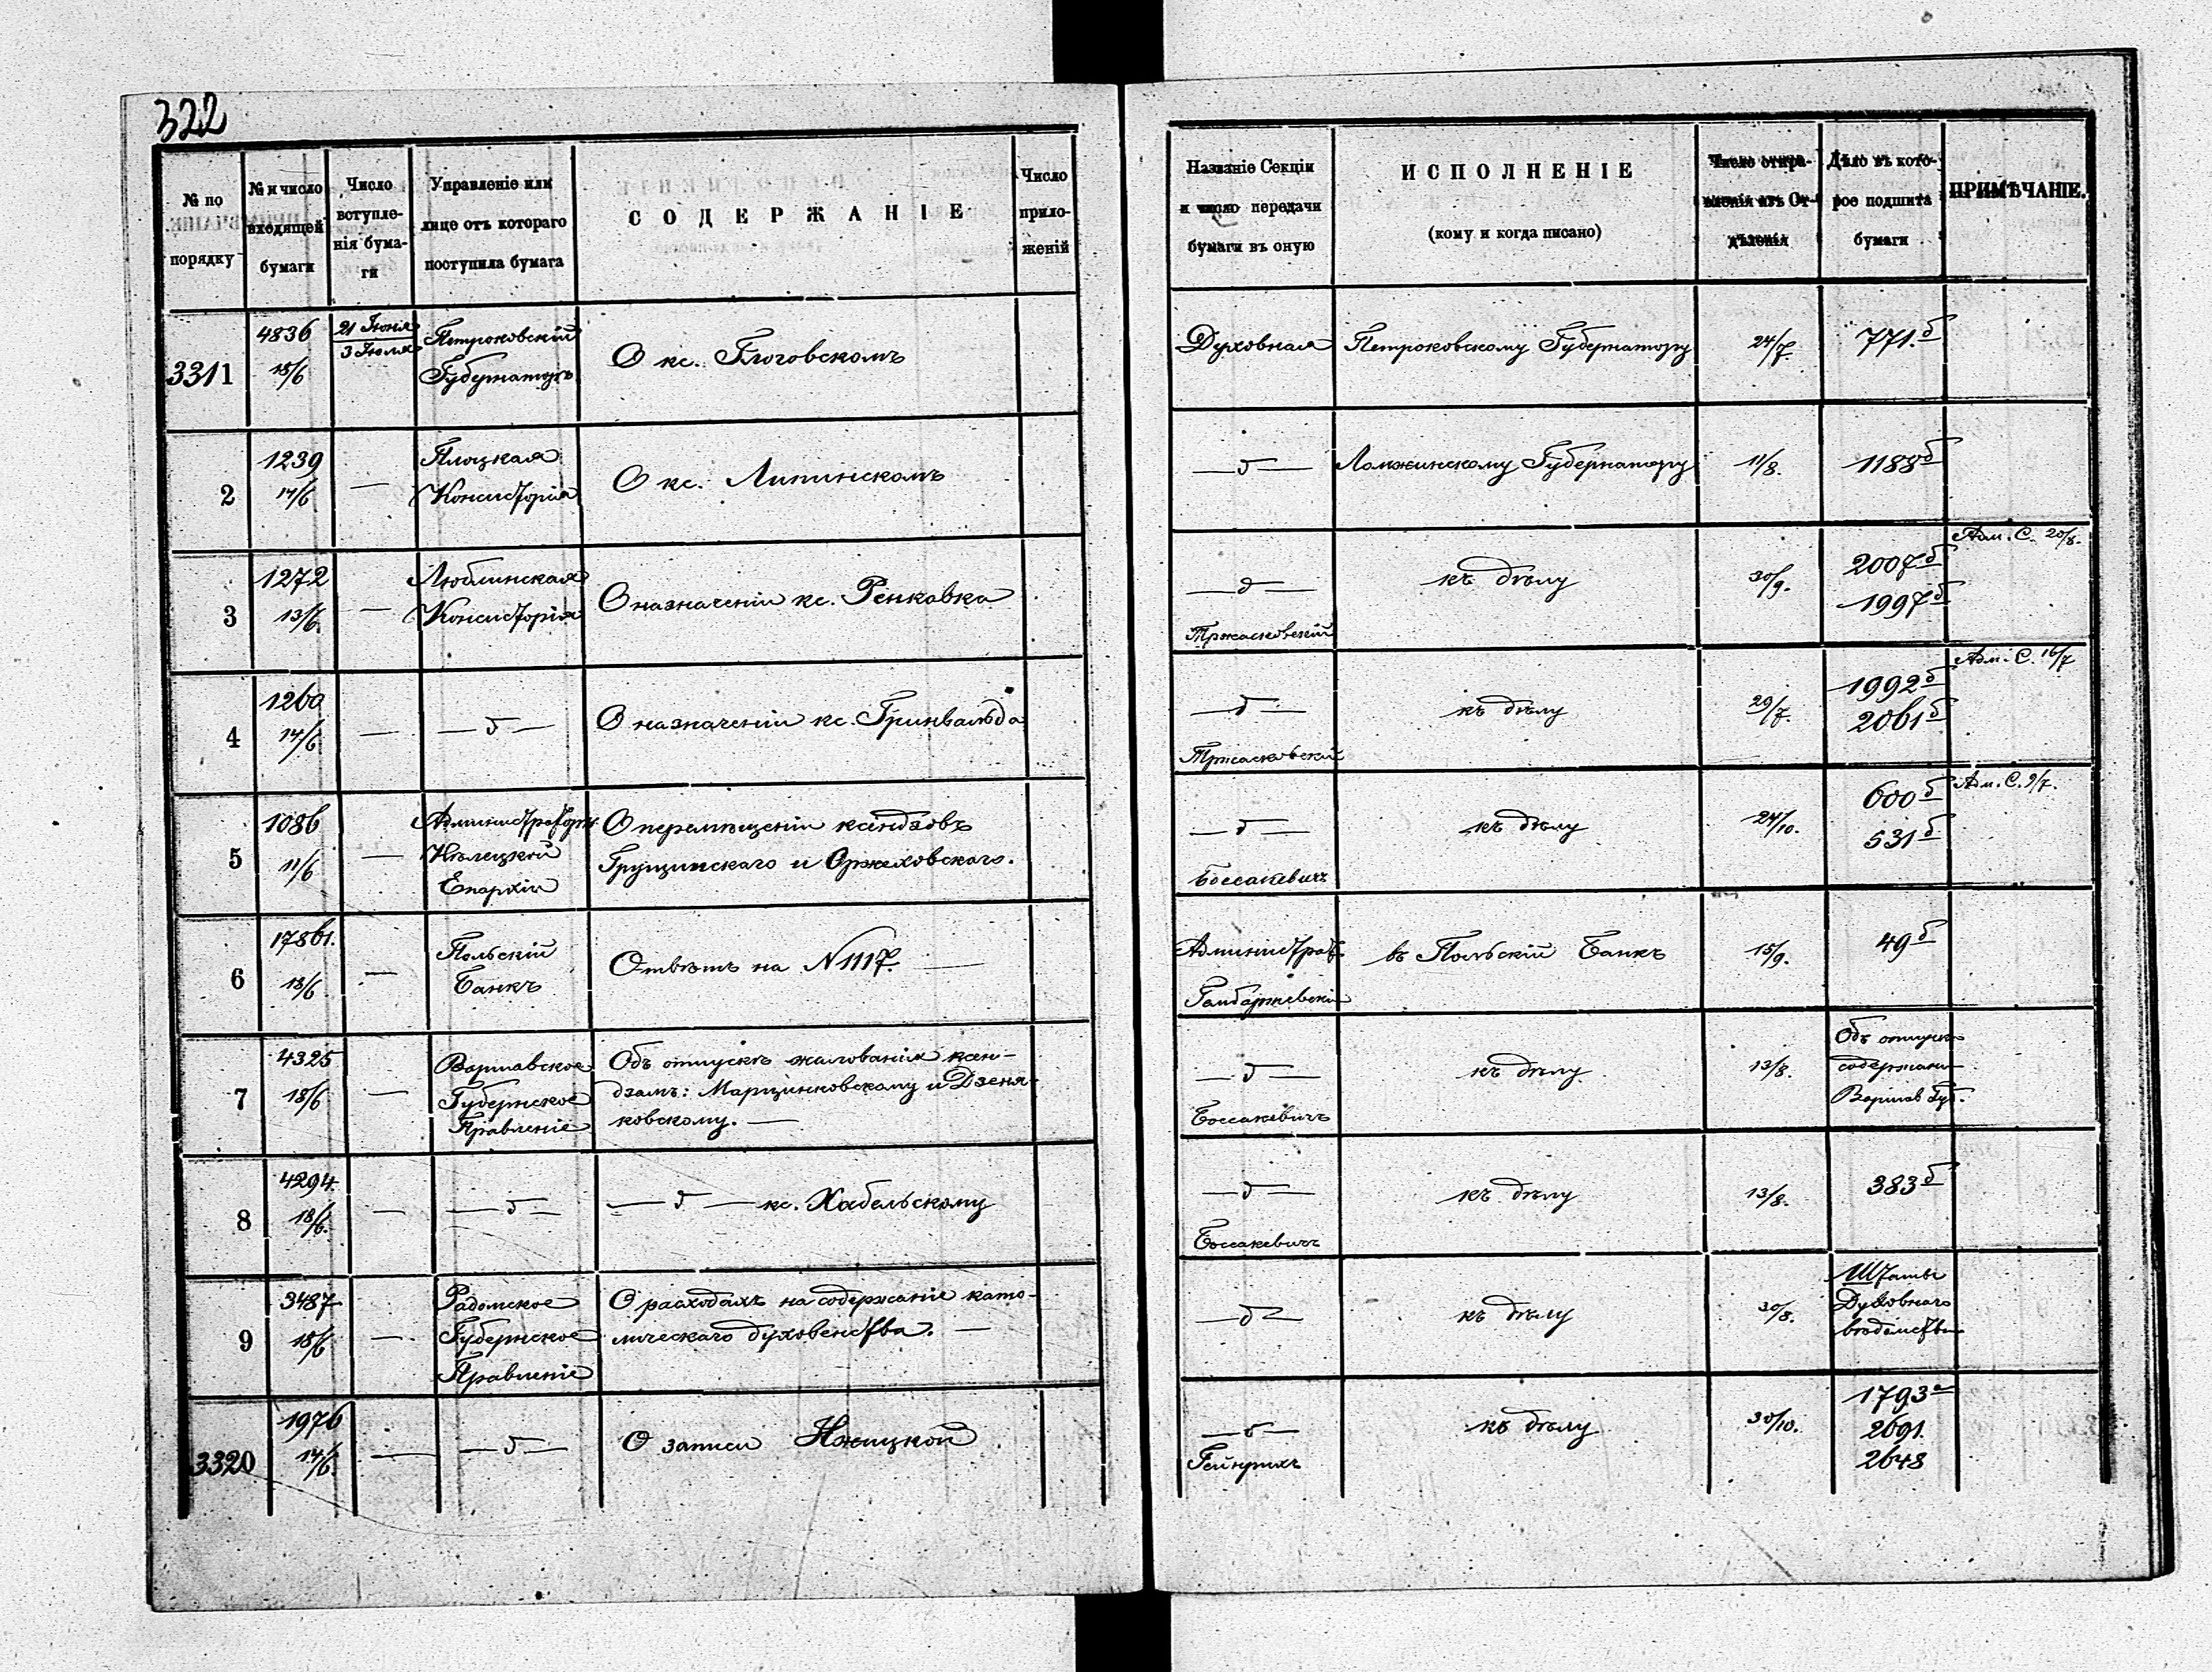 322
№ по порядку
№ и число входящей бумаги
Число вступленія бумаги
Управленіе или лице отъ котораго поступила бумага
СОДЕРЖАНІЕ
Число приложеній
Названіе Секціи и число передачи бумаги въ оную
ИСПОЛНЕНІЕ
(кому и когда писано)
Число отправленія изъ Отдѣленія
Дѣло въ которое подшита бумаги
ПРИМѢЧАНІЕ.
3311
4836
15/6
21 Іюня
3 Іюля
Петроковскій
Губернаторъ
О кс. Глоговскомъ
Духовная
Петроковскому Губернатору
24/7.
771.б
2
1239
14/6
—
Плоцкая
Консисторія
О кс. Липинскомъ
— δ —
Ломжинскому Губернатору
11/8.
1188б
3
1272
13/6.
—
Люблинская
Консисторія
О назначеніи кс. Ренкавка
— δ —
Тржасковскій
къ дѣлу
30/9.
2007б
1997б
Адм. С. 20/8.
4
1260
14/6
—
— δ —
О назначеніи кс. Гринвальда
— δ —
Тржасковскій
къ дѣлу
29/7.
1992б
2061б
Адм. С. 16/7
5
1086
11/6
—
Администраторъ
Кѣлецкой
Епархіи
О перемѣщеніи ксендзовъ
Грущинскаго и Оржеховскаго.
— δ —
Боссакевичъ
къ дѣлу
24/10.
600б
531б
Адм. С. 9/7.
6
17861.
13/6
—
Польскій
Банкъ
Отвѣтъ на N 1117. —
Администрат.
Гамбаржевскій
въ Польскій Банкъ
15/9.
49б
7
4325
18/6
—
Варшавское
Губернское
Правленіе
Объ отпускѣ жалованія ксен-
дзамъ: Марцинковскому и Дзеня-
ковскому. —
— δ —
Боссакевичъ
къ дѣлу.
13/8.
Объ отпускѣ
содержанія
Варшав Губ.
8
4294
18/6.
—
— δ —
— δ — кс. Хабельскому
— δ —
Боссакевичъ
къ дѣлу
13/8.
383б
9
3487
15/6
—
Радомское
Губернское
Правленіе
О расходахъ на содержаніе като-
лическаго духовенства. —
— δ —
къ дѣлу
30/8.
Штаты
Духовнаго
вѣдомства
3320
1976
14/6.
—
— δ —
О записи Нжицкой
— δ —
Гейнрихъ
къ дѣлу
30/10.
1793а
2691.
2648